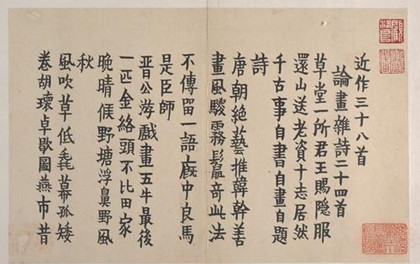 近作三十八首
論畫雜詩二十四首
草堂一所君王賜隐服
還山送老資十志居然
千古事自書自畫自題
詩
唐朝絶藝推韓幹善
畫風駿霧鬣奇此法
不傳留一語廄中良馬
是臣師
晋公游戲畫五牛最後
一匹金絡頭不比田家
晚晴候野塘浮鼻野風
秋
風吹草低毳幕孤矮
卷胡瓌卓歇圖燕市昔